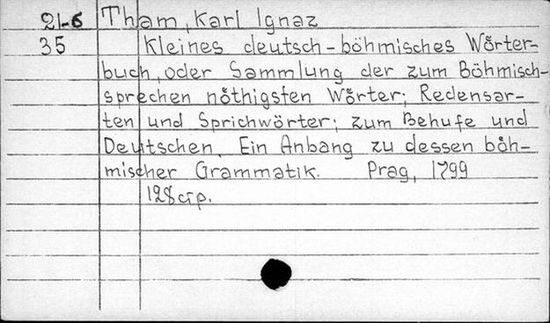 21-6 Tham, Karl Ignaz
35 Kleines deutsch-böhmisches Wörter-
buch, oder Sammlung der zum Böhmisch-
sprechen nöthigsten Wörter; Redensar-
ten und Sprichwörter; zum Behufe und
Deutschen. Ein Anbang zu dessen böh-
mischer Grammatik. Prag, 1799
128 стр.